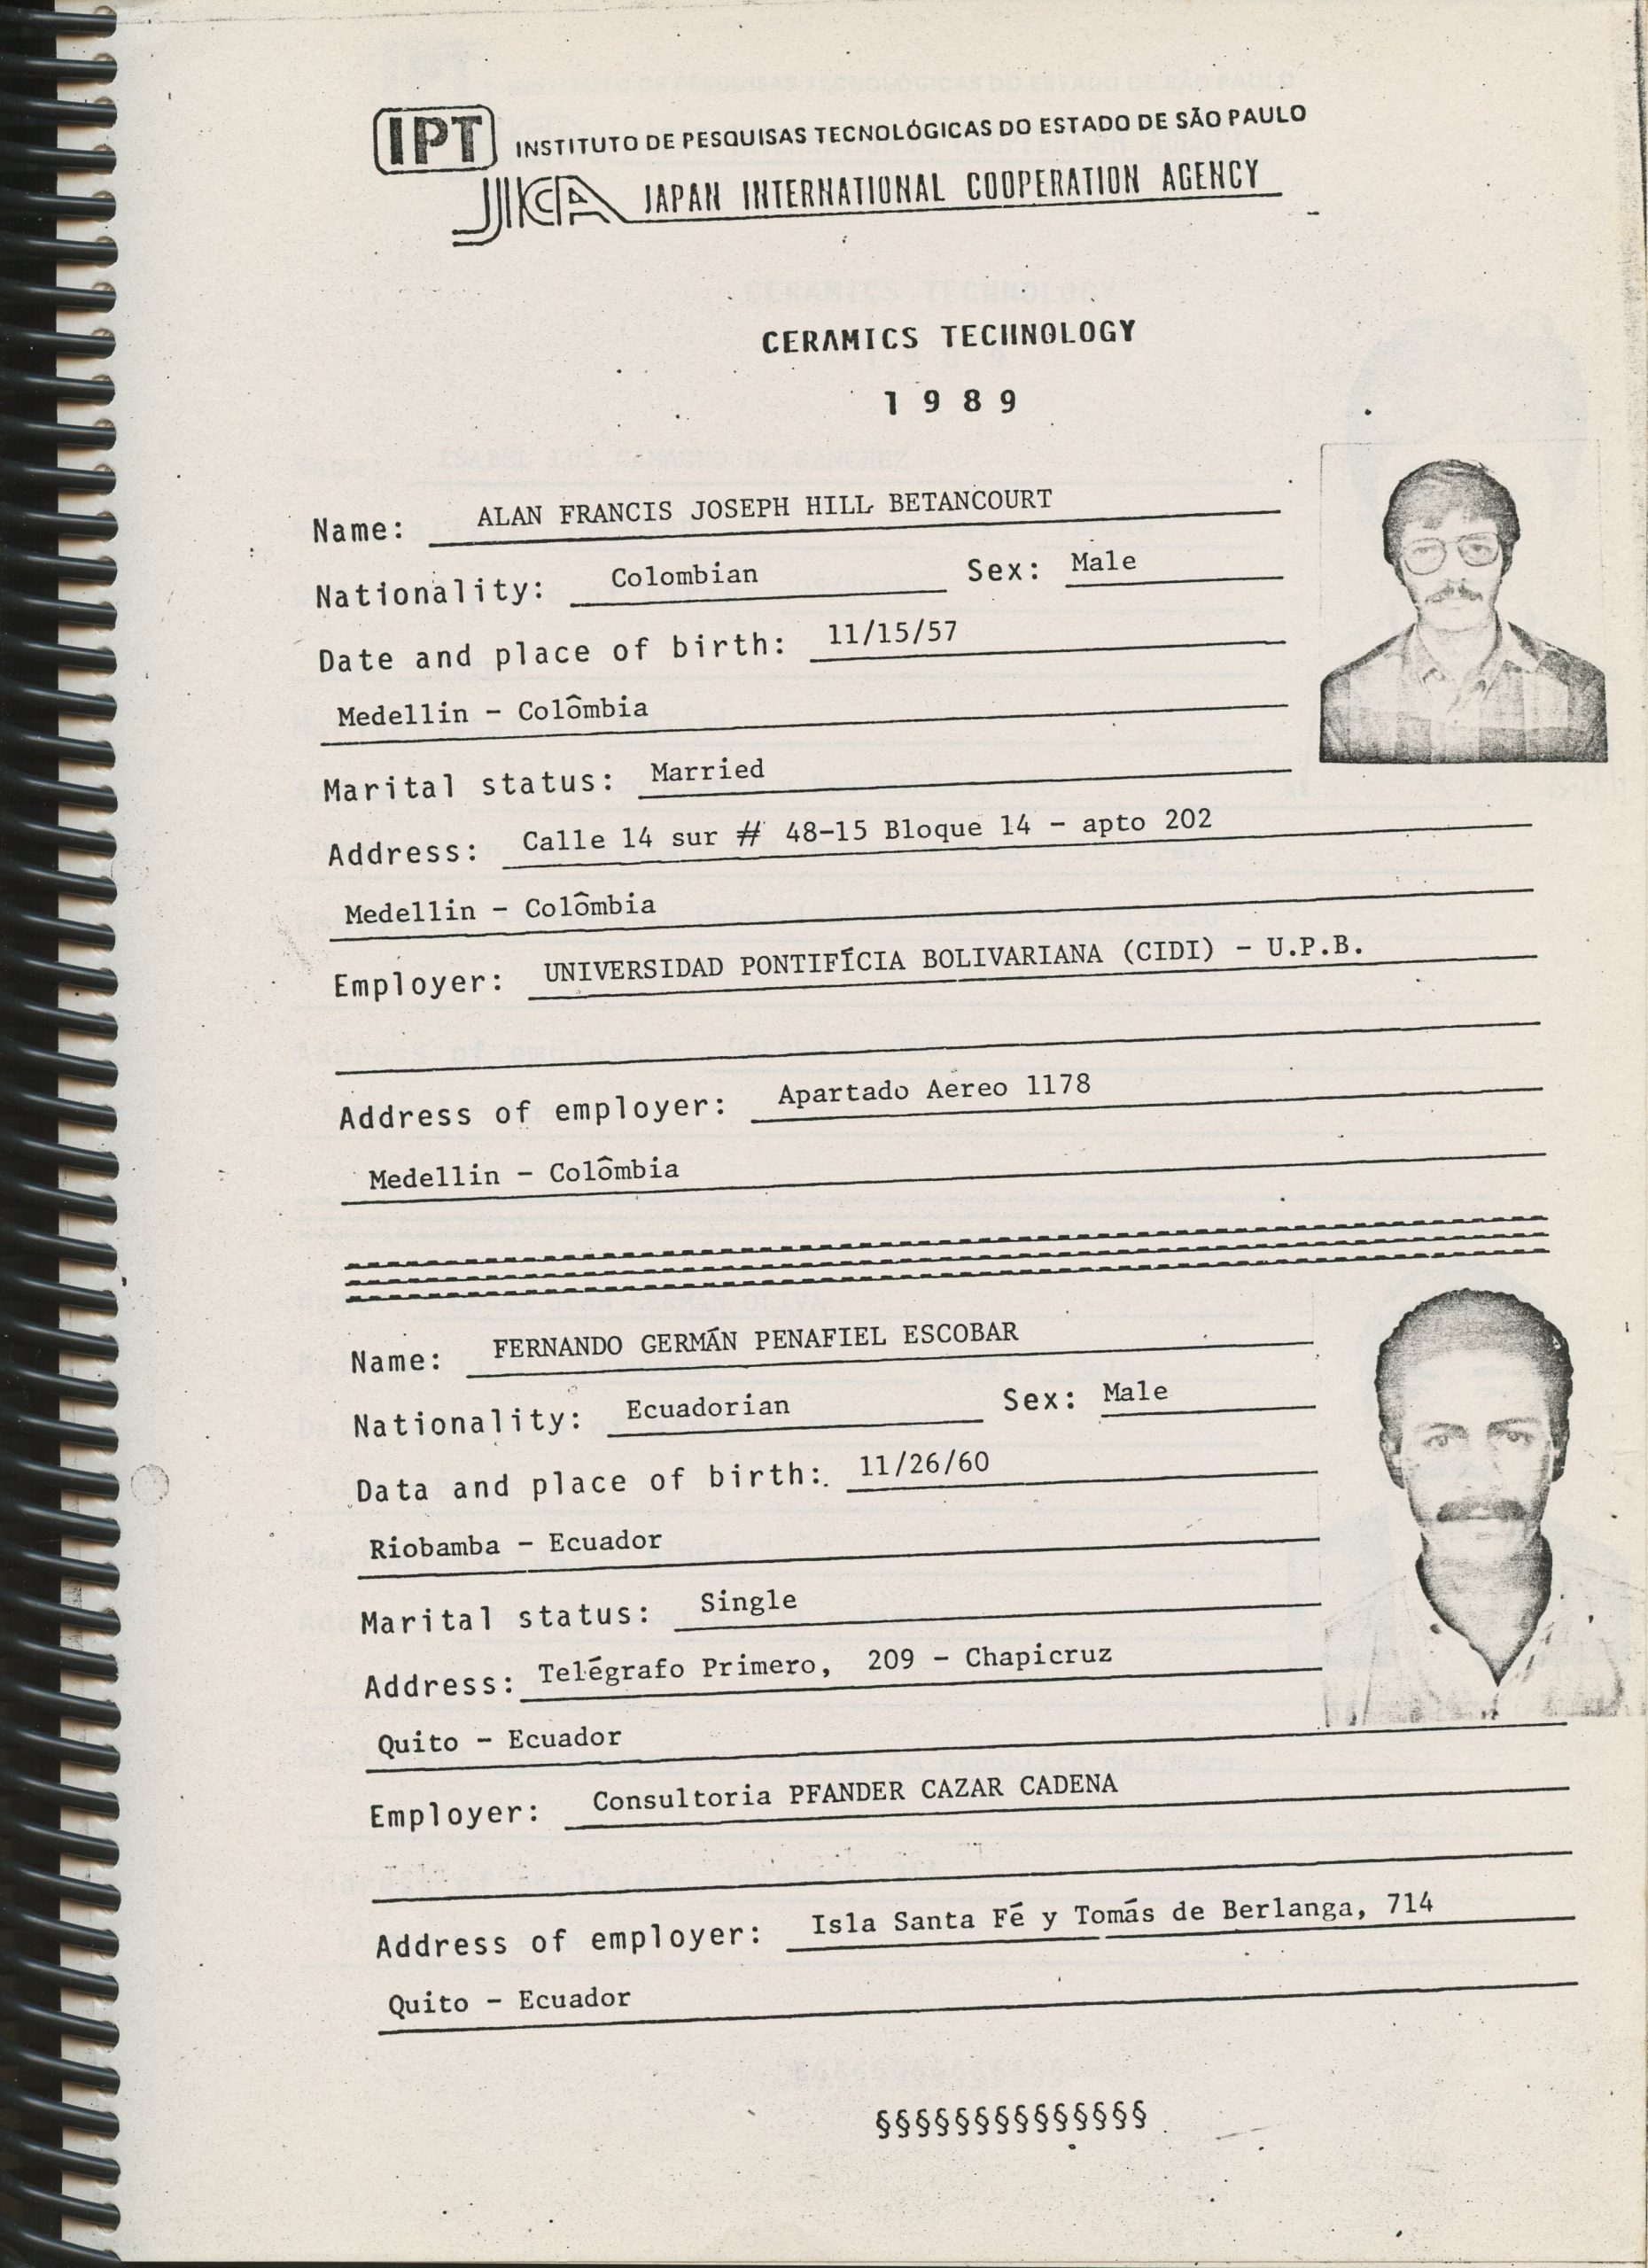 IPT INSTITUTO DE PESQUISAS TECNOLÓGICAS DO ESTADO DE SÃO PAULO
JICA JAPAN INTERNATIONAL COOPERATION AGENCY
CERAMICS TECHNOLOGY
1989
Name: ALAN FRANCIS JOSEPH HILL BETANCOURT
Nationality: Colombian Sex: Male
Date and place of birth: 11/15/57
Medellin - Colômbia
Marital status: Married
Address: Calle 14 sur # 48-15 Bloque 14 - apto 202
Medellin - Colômbia
Employer: UNIVERSIDAD PONTIFÍCIA BOLIVARIANA (CIDI) - U.P.B.
Address of employer: Apartado Aereo 1178
Medellin - Colômbia
Name: FERNANDO GERMÁN PENAFIEL ESCOBAR
Nationality: Ecuadorian Sex: Male
Data and place of birth: 11/26/60
Riobamba - Ecuador
Marital status: Single
Address: Telégrafo Primero, 209 - Chapicruz
Quito - Ecuador
Employer: Consultoria PFANDER CAZAR CADENA
Address of employer: Isla Santa Fé y Tomás de Berlanga, 714
Quito - Ecuador
§§§§§§§§§§§§§§